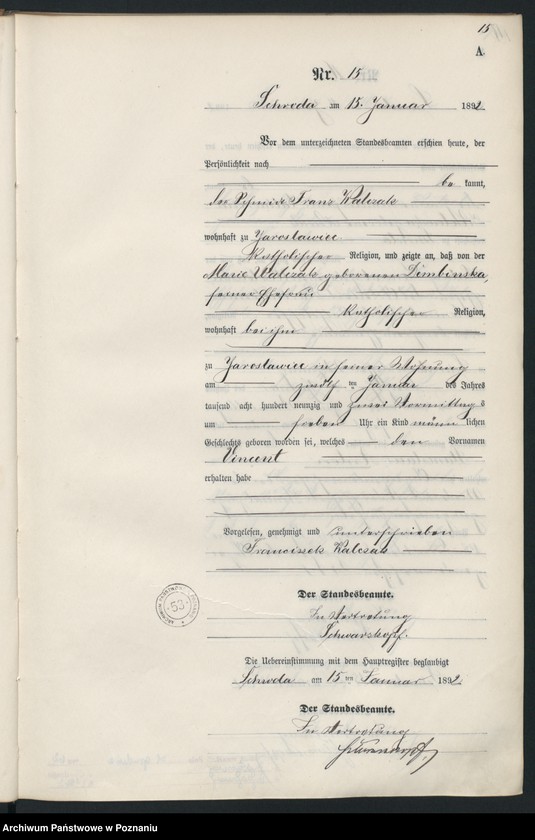 15
A.
Nr. 15
Schroda am 15. Januar 1892
Vor dem unterzeichneten Standesbeamten erschien heute, der
Persönlichkeit nach
be kannt,
der Schmied Franz Walczak
wohnhaft zu Jaroslawiec
katholischer Religion, und zeigte an, daß von der
Marie Walczak geborenen Dembinska,
seiner Ehefrau
katholischer Religion,
wohnhaft bei ihm
zu Jaroslawiec in seiner Wohnung
am zwölften Januar des Jahres
tausend acht hundert neunzig und zwei Vormittags
um sieben Uhr ein Kind männlichen
Geschlechts geboren worden sei, welches den Vornamen
Vincent
erhalten habe
Vorgelesen, genehmigt und unterschrieben
Franciszek Walczak
Der Standesbeamte.
In Vertretung
Schwarzkopf.
Die Uebereinstimmung mit dem Hauptregister beglaubigt
Schroda am 15ten Januar 1892.
Der Standesbeamte.
In Vertretung
53
Archiwum Państwowe w Poznaniu